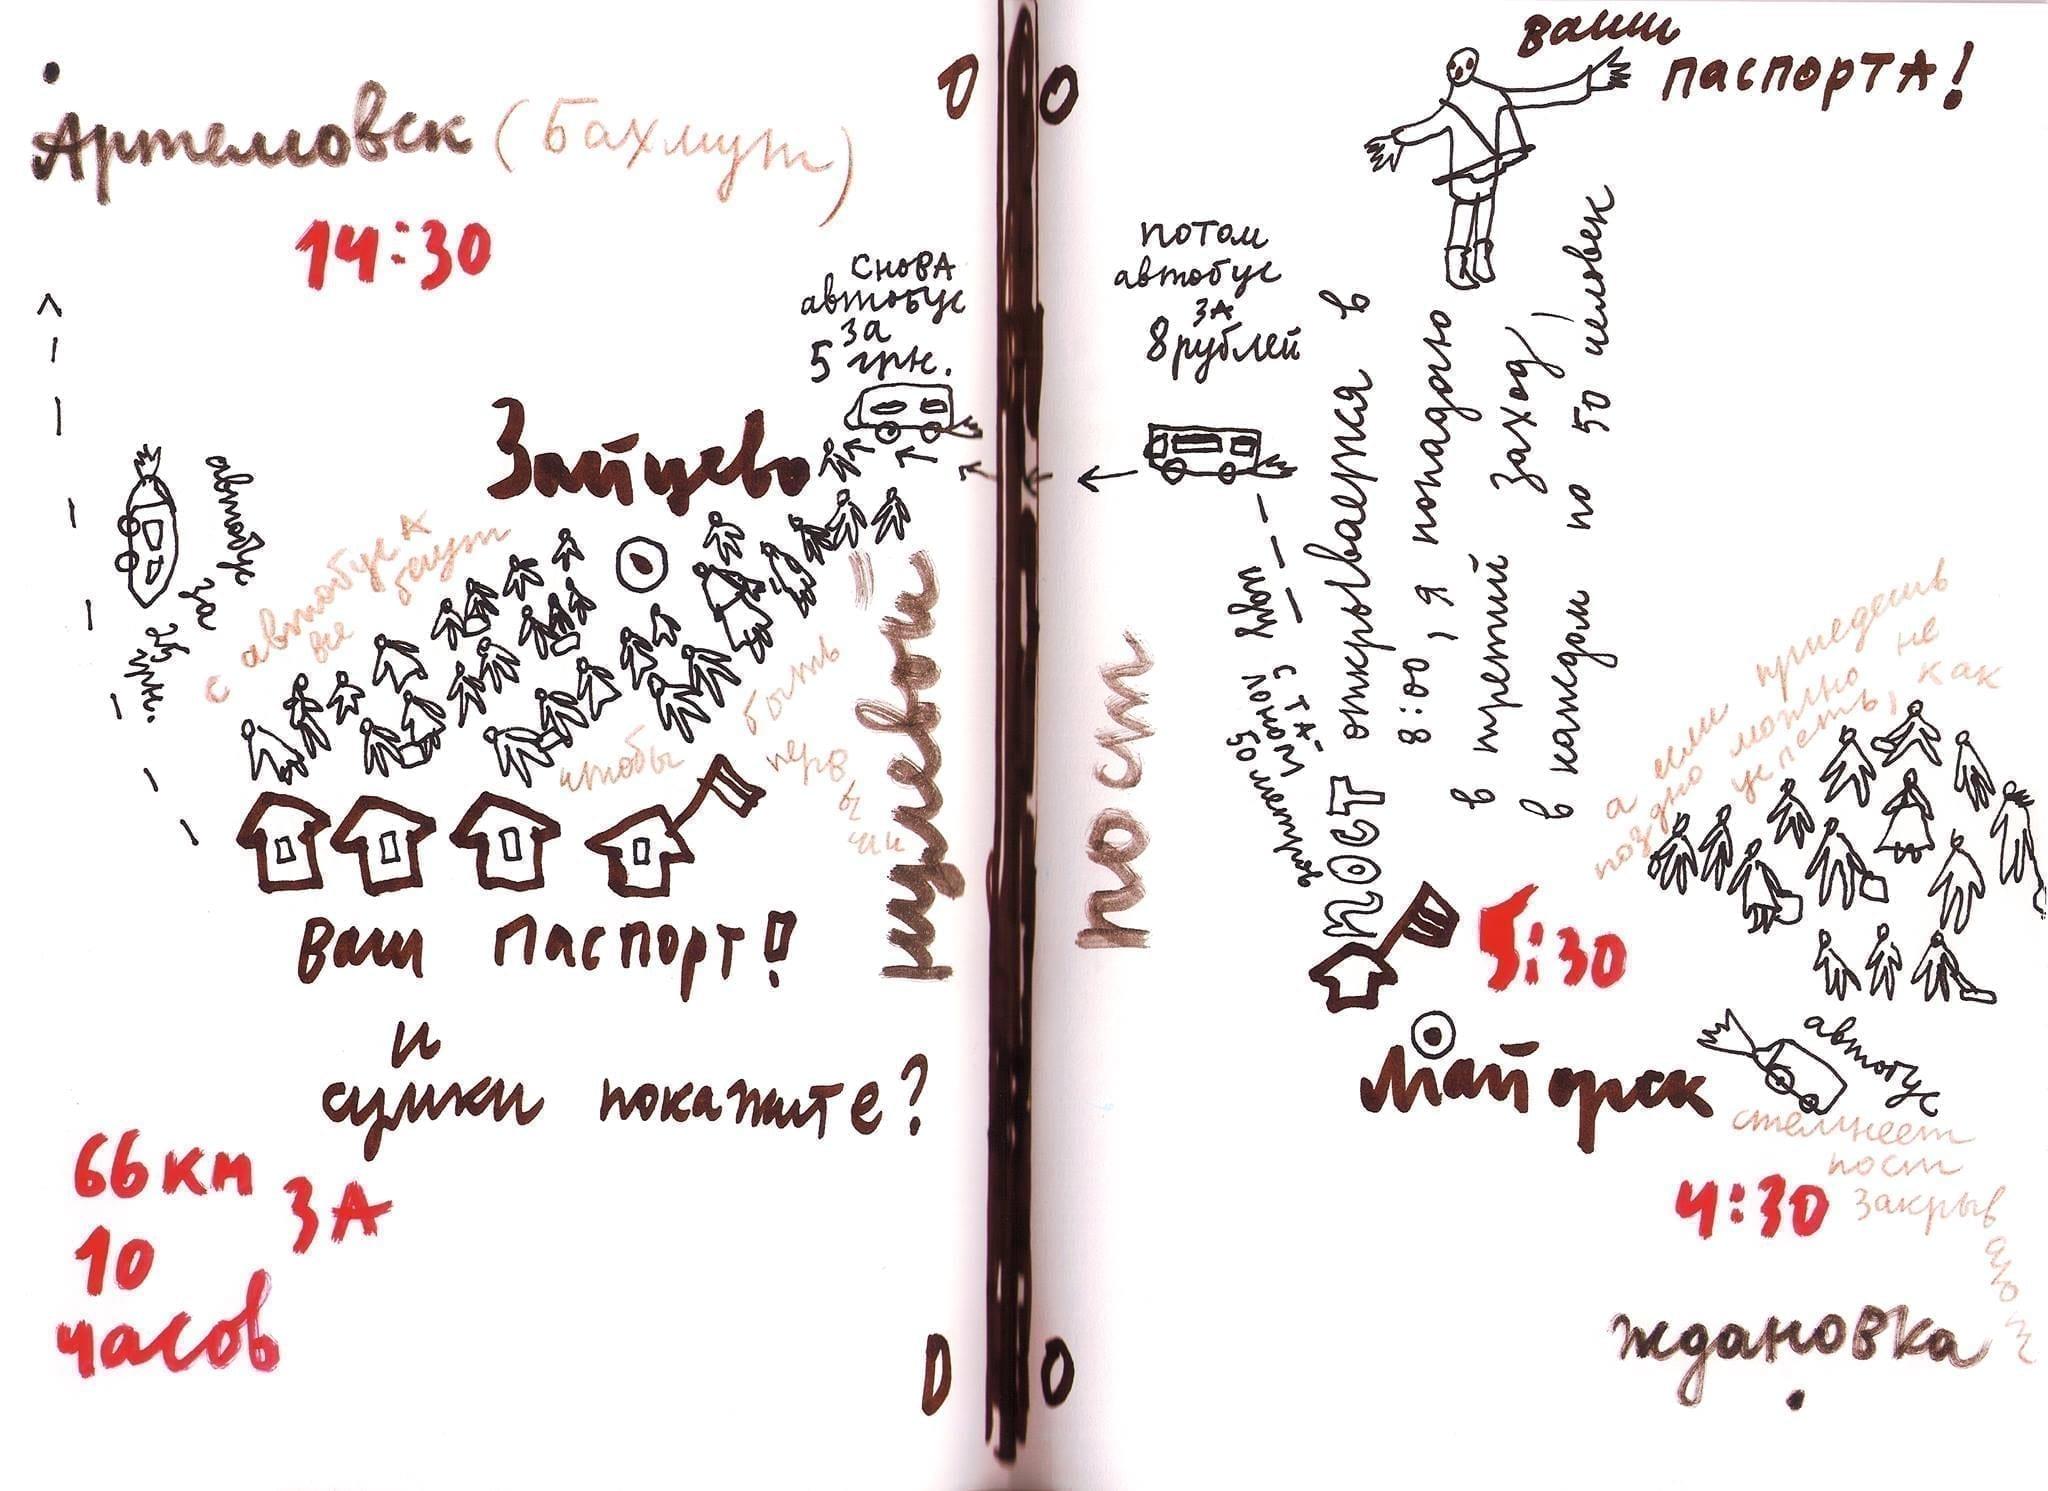 Артемовск (Бахмут)
14:30
снова
автобус
за
5 грн.
Зайцево
автобус
за
грн.
с автобуса
все бегут
чтобы
быть
первы
ми
ваш паспорт!
и
сумки покажите?
66 км
за
10
часов
нулевой
пост
0 0
0 0
ваши
паспорта!
потом
автобус
за
8 рублей
открывается в
8:00, я попадаю
в третий заход,
в каждом по 50 человек
иду
потом
50 метров
пост
5:30
Майорск
а если приедешь
поздно можно не
успеть, как
автобус
стемнеет
пост
закрыв
ают
4:30
Ждановка